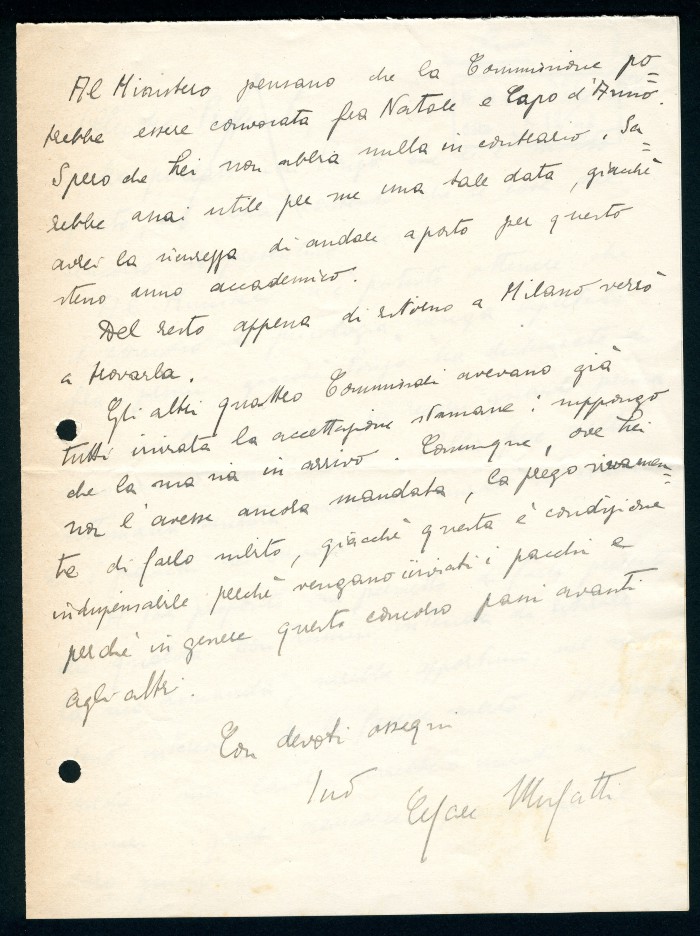 Al Ministero pensano che la Commissione po=
trebbe essere convocata fra Natale e Capo d'Anno.
Spero che Lei non abbia nulla in contrario. Sa=
rebbe assai utile per me una tale data, giacchè
avrei la sicurezza di andare a posto per questo
stesso anno accademico.
Del resto appena di ritorno a Milano verrò
a trovarla.
Gli altri quattro Commissari avevano già
tutti inviata la accettazione stamane: suppongo
che la sua sia in arrivo. Comunque, ove Lei
non l'avesse ancora mandata, la prego vivamen=
te di farlo subito, giacchè questa è condizione
indispensabile perchè vengano inviati i pacchi e
perchè in genere questo concorso passi avanti
agli altri.
Con devoti ossequi
Suo
Cesare Musatti